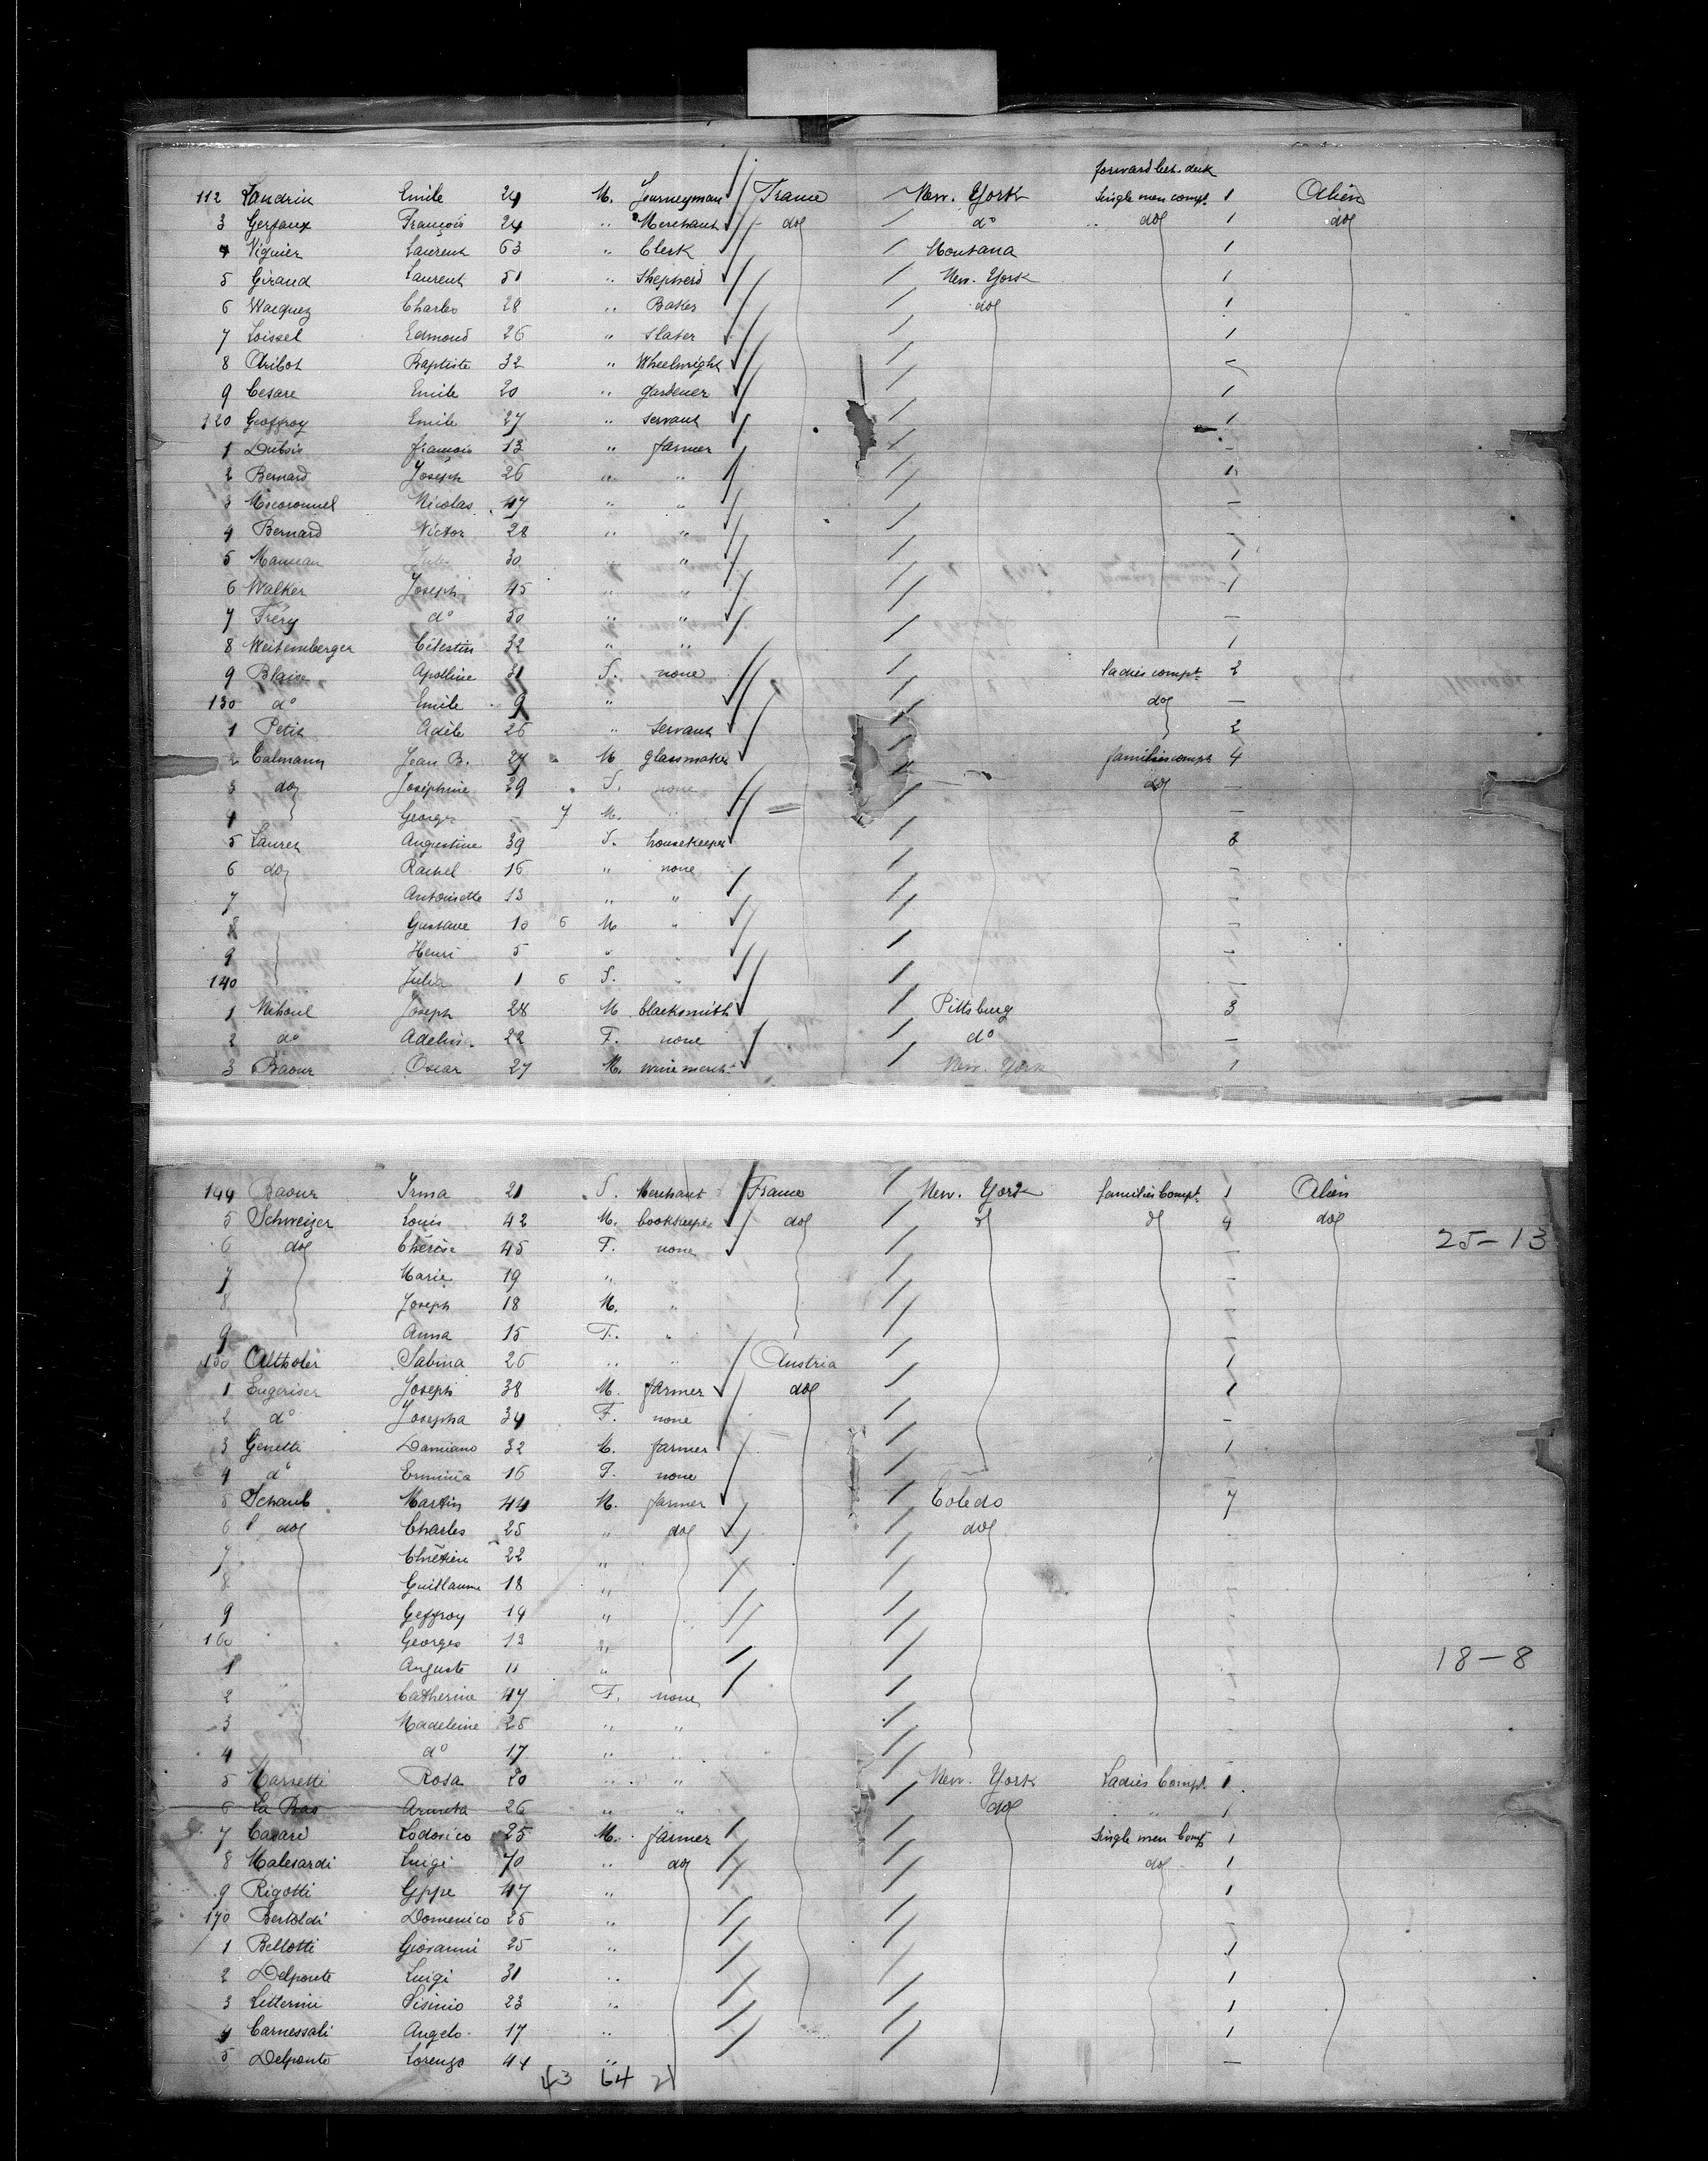 forward bet. deck
112 Landrin Emile 24 M. Journeyman France New. York Single men compt. 1 Alien
3 Gerfaux François 24 " Merchant do d° do 1 do
4 Viguier Laurent 63 " Clerk Montana 1
5 Giraud Laurent 51 " Shepherd New. York 1
6 Wacquez Charles 28 " Baker do 1
7 Loissel Edmond 26 " Slater 1
8 Aribot Baptiste 32 " Wheelwright -
9 Cesare Emile 20 " gardener 1
120 Geoffroy Emile 27 " servant 1
1 Dubois françois 13 " farmer -
2 Bernard Joseph 26 " " 1
3 Nicolas 47 " " -
4 Bernard Victor 28 " " -
5 30 " " 1
6 Walker Joseph 45 " " 1
7 Tréry d° 30 " " -
8 Weitemberger Célestin 32 " " 1
9 Blaise Apolline 31 S. none ladies compt. 2
130 d° Emile 9 " do -
1 Petit Adèle 26 " servant 2
2 Calmann Jean B. 27 M glassmaker families compt 4
3 do Joséphine 29 S. none do -
4 George - 7 M. " -
5 Lauret Augustine 39 S. housekeeper 2
6 do Rachel 16 " none -
7 Antoinette 13 " " -
8 Gustave 10 6 M " -
9 Henri 5 " " -
140 Julia 1 6 S. " -
1 Mihoul Joseph 28 M blacksmith Pittsburg 3
2 d° 22 F. none d° -
3 Baour Oscar 27 M. wine mercht New. York 1
144 Baour Irma 21 S. Merchant France New. York families Compt. 1 Alien
5 Schweizer Louis 42 M. bookkeeper do do do 4 do
25-13
6 do Thérèse 45 F. none -
7 Marie 19 " " -
8 Joseph 18 M. " -
9 Anna 15 F. " -
150 Althaler Sabina 26 " " Austria 1
1 Joseph 38 M. farmer do 1
2 d° Josepha 34 F. none -
3 Genetti Damiano 32 M. farmer 1
4 d° Erminia 16 F. none -
5 Schaub Martin 44 M. farmer Toledo 7
6 do Charles 25 " do do
7 Chrétien 22 "
8 Guillaume 18 "
9 Geffroy 14 "
160 Georges 13 "
1 Auguste 11 "
18-8
2 Catherine 47 F. none -
3 Madeleine 25 " "
4 d° 17 " "
5 Marsetti Rosa 20 " " New. York Ladies Compt. 1
6 La Bas 26 " " do " 1
7 Lodovico 25 M. farmer Single men Compt 1
8 Malesardi Luigi 70 " do do 1
9 Rigotti Gppe 47 " 1
170 Bertoldi Domenico 25 " -
1 Bellotti Giovanni 25 " 1
2 Delponte Luigi 31 " 1
3 Litterini Sisinio 23 " 1
4 Carnessali Angelo 17 " 1
5 Delponte Lorenzo 44 " -
43 64 21